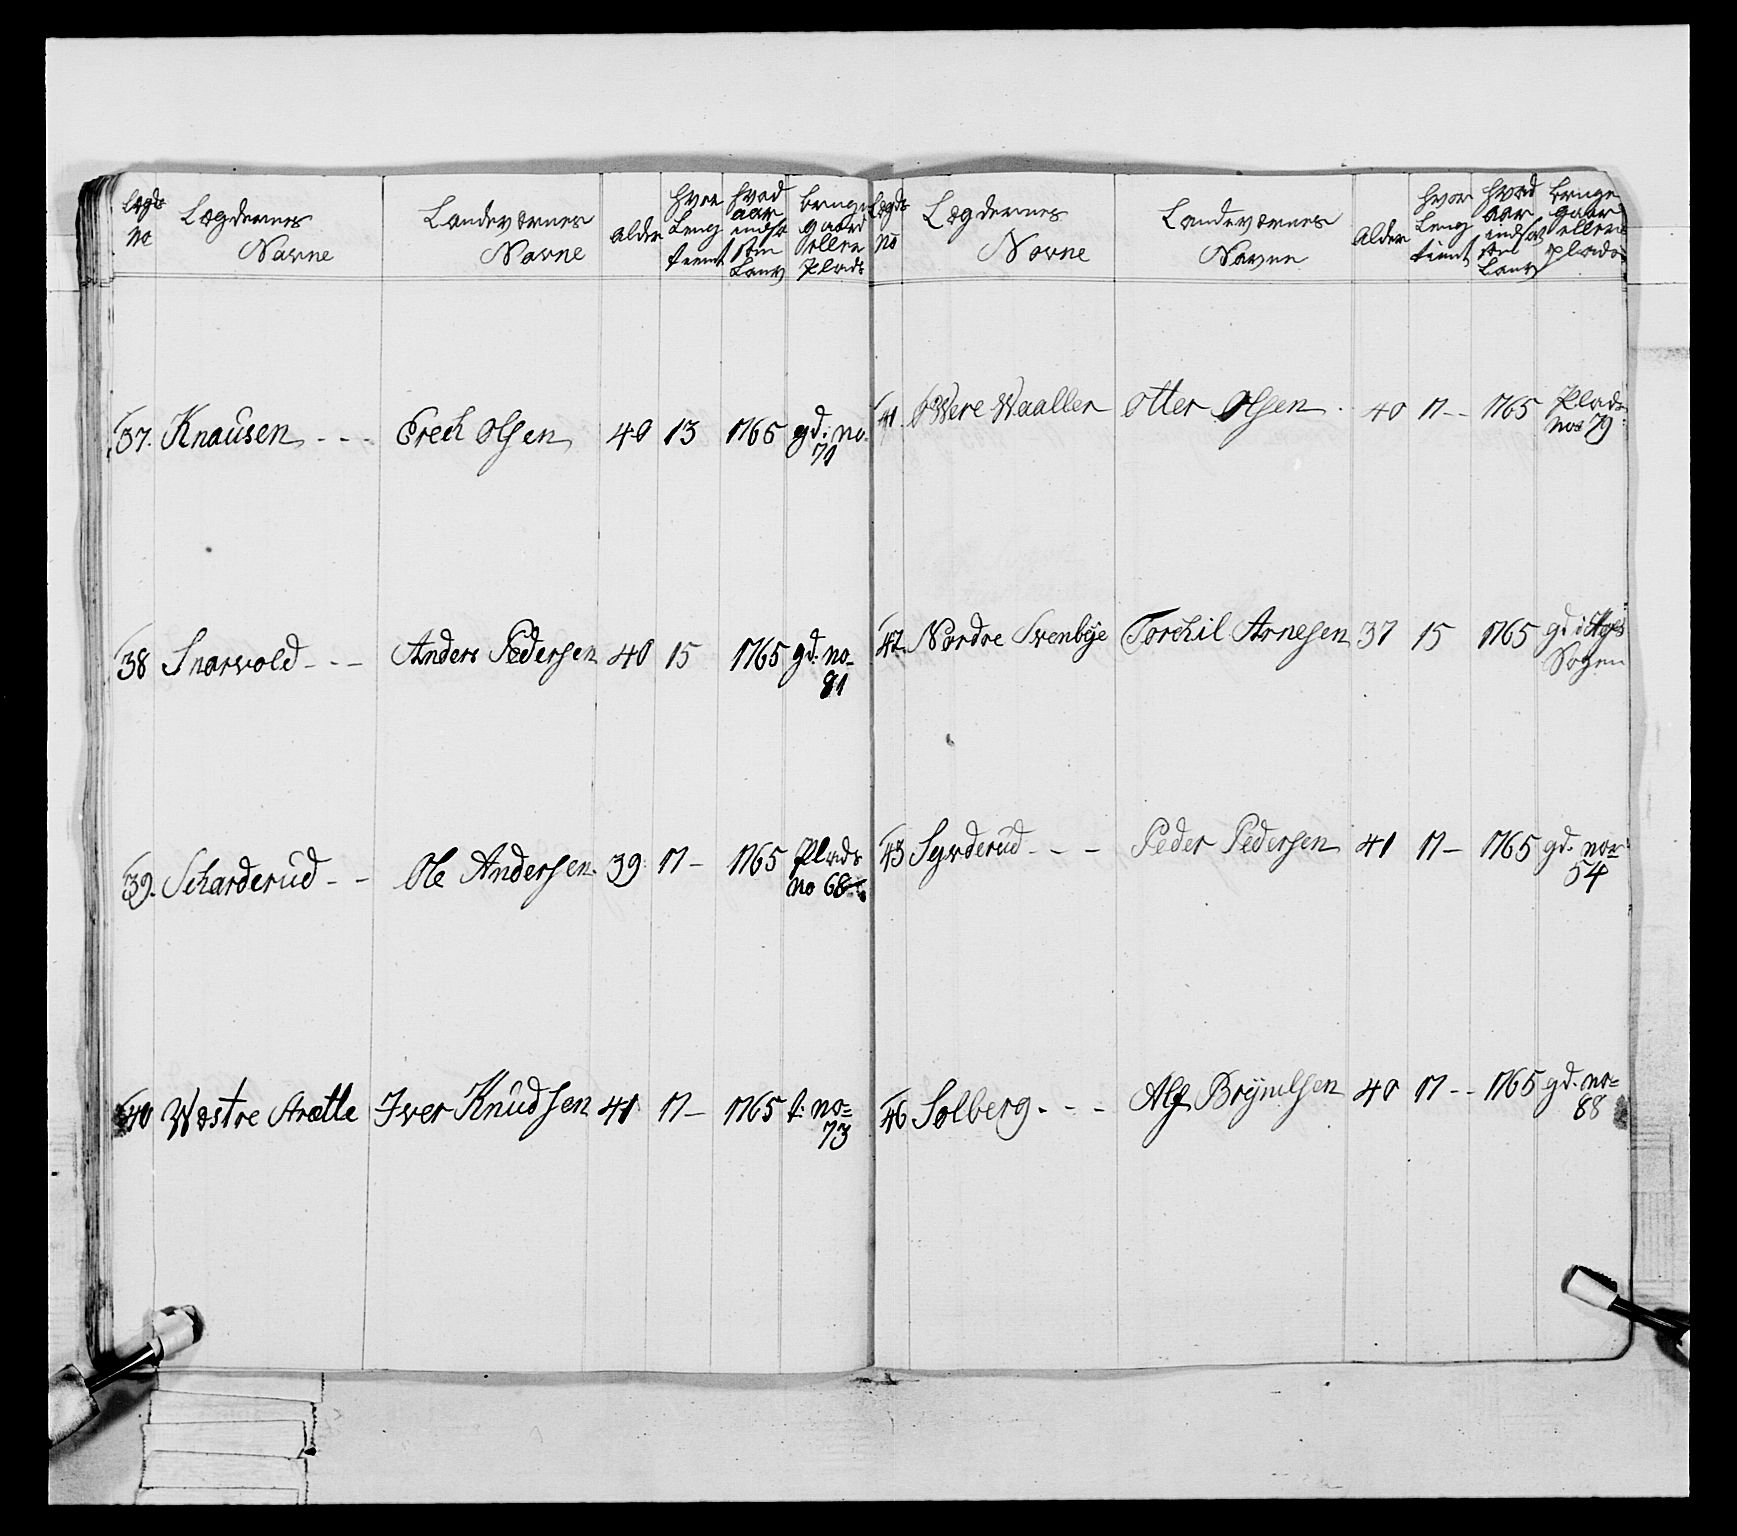 Legds no | Lægdernes Navne | Landeværnes Navne | alder | hvor Leng tient | hvad aar indsat som Lanv | bruger gaard eller Plads
37. | Knausen - - - | Erech Olsen | 40 | 13 | 1765 | gd: no. 71
38 | Snarvold - - - | Anders Pedersen | 40 | 15 | 1765 | gd: no- 81
39. | Scharderud - - | Ole Andersen. | 39 | 17 - | 1765 | Plads no 68
40 | Wæstre Arætte | Iver Knudsen | 41 | 17 - | 1765 | f: no= 73
Legds no | Lægdernes Navne | Landeværnes Navne | alder | hvor Leng tient | hvad aar indsat som Lanv | bruger gaar eller plads
41. | Øwere Waaller | Otter Olsen . | 40 | 17 - - | 1765 | Plads no: 79
42 | Nordre Svenbye | Torchil Arnesen | 37 | 15 | 1765 | gd i Sogen
43 | Synderud - - - | Peder Pedersen | 41 | 17 - | 1765 | gd. no= 54
46 | Solberg. - - | Alf Brynelsen | 40 | 17 - - | 1765 | gd. no= 88